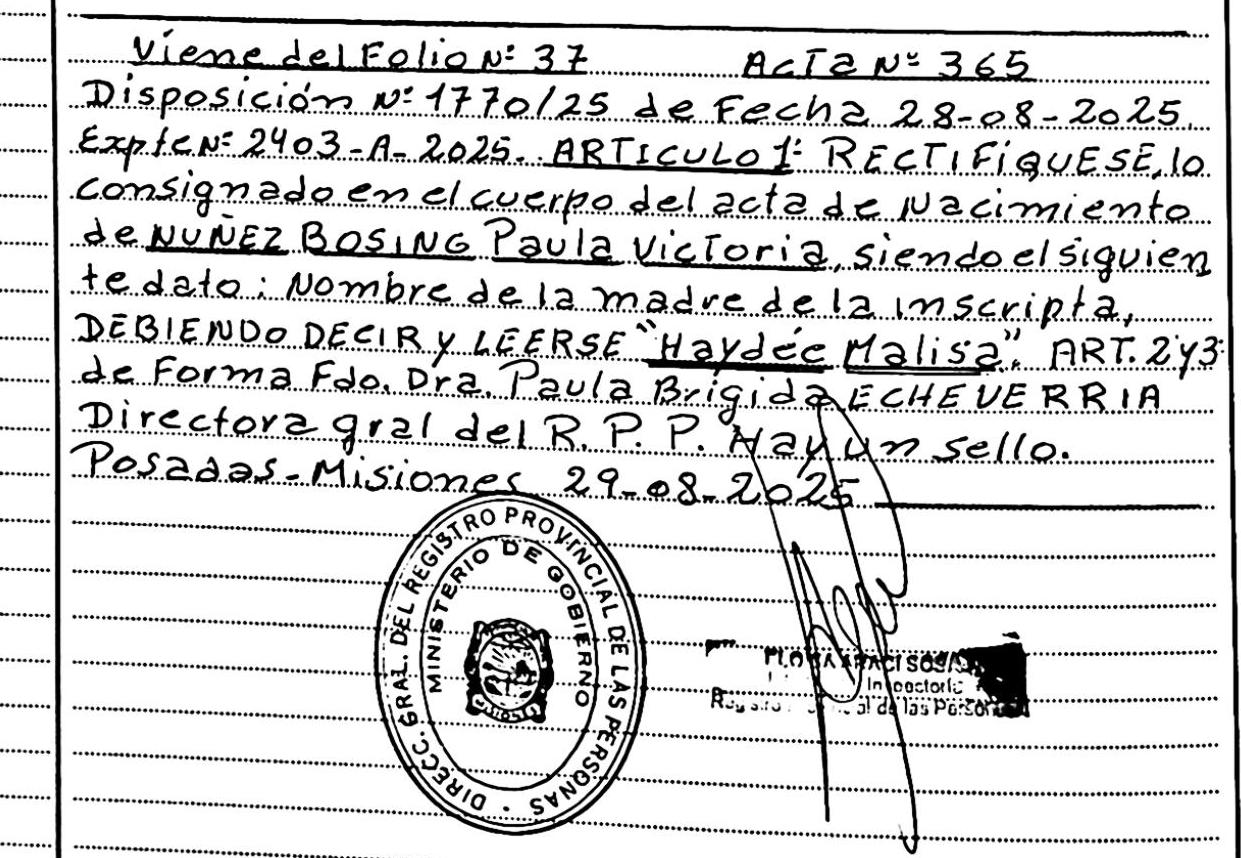 Viene del Folio Nº 37 Acta Nº 365
Disposición Nº 1770/25 de Fecha 28-08-2025.
Expte Nº 2403-A-2025. ARTICULO 1º RECTIFIQUESE, lo
consignado en el cuerpo del acta de Nacimiento
de NUÑEZ BOSING Paula Victoria, siendo el siguien
te dato: Nombre de la madre de la inscripta,
DEBIENDO DECIR y LEERSE "Haydée Malisa". ART. 2 y 3
de Forma Fdo. Dra. Paula Brígida ECHEVERRIA
Directora gral del R. P. P. Hay un sello.
Posadas-Misiones 29-08-2025
DIRECC. GRAL. DEL REGISTRO PROVINCIAL DE LAS PERSONAS
MINISTERIO DE GOBIERNO
de las